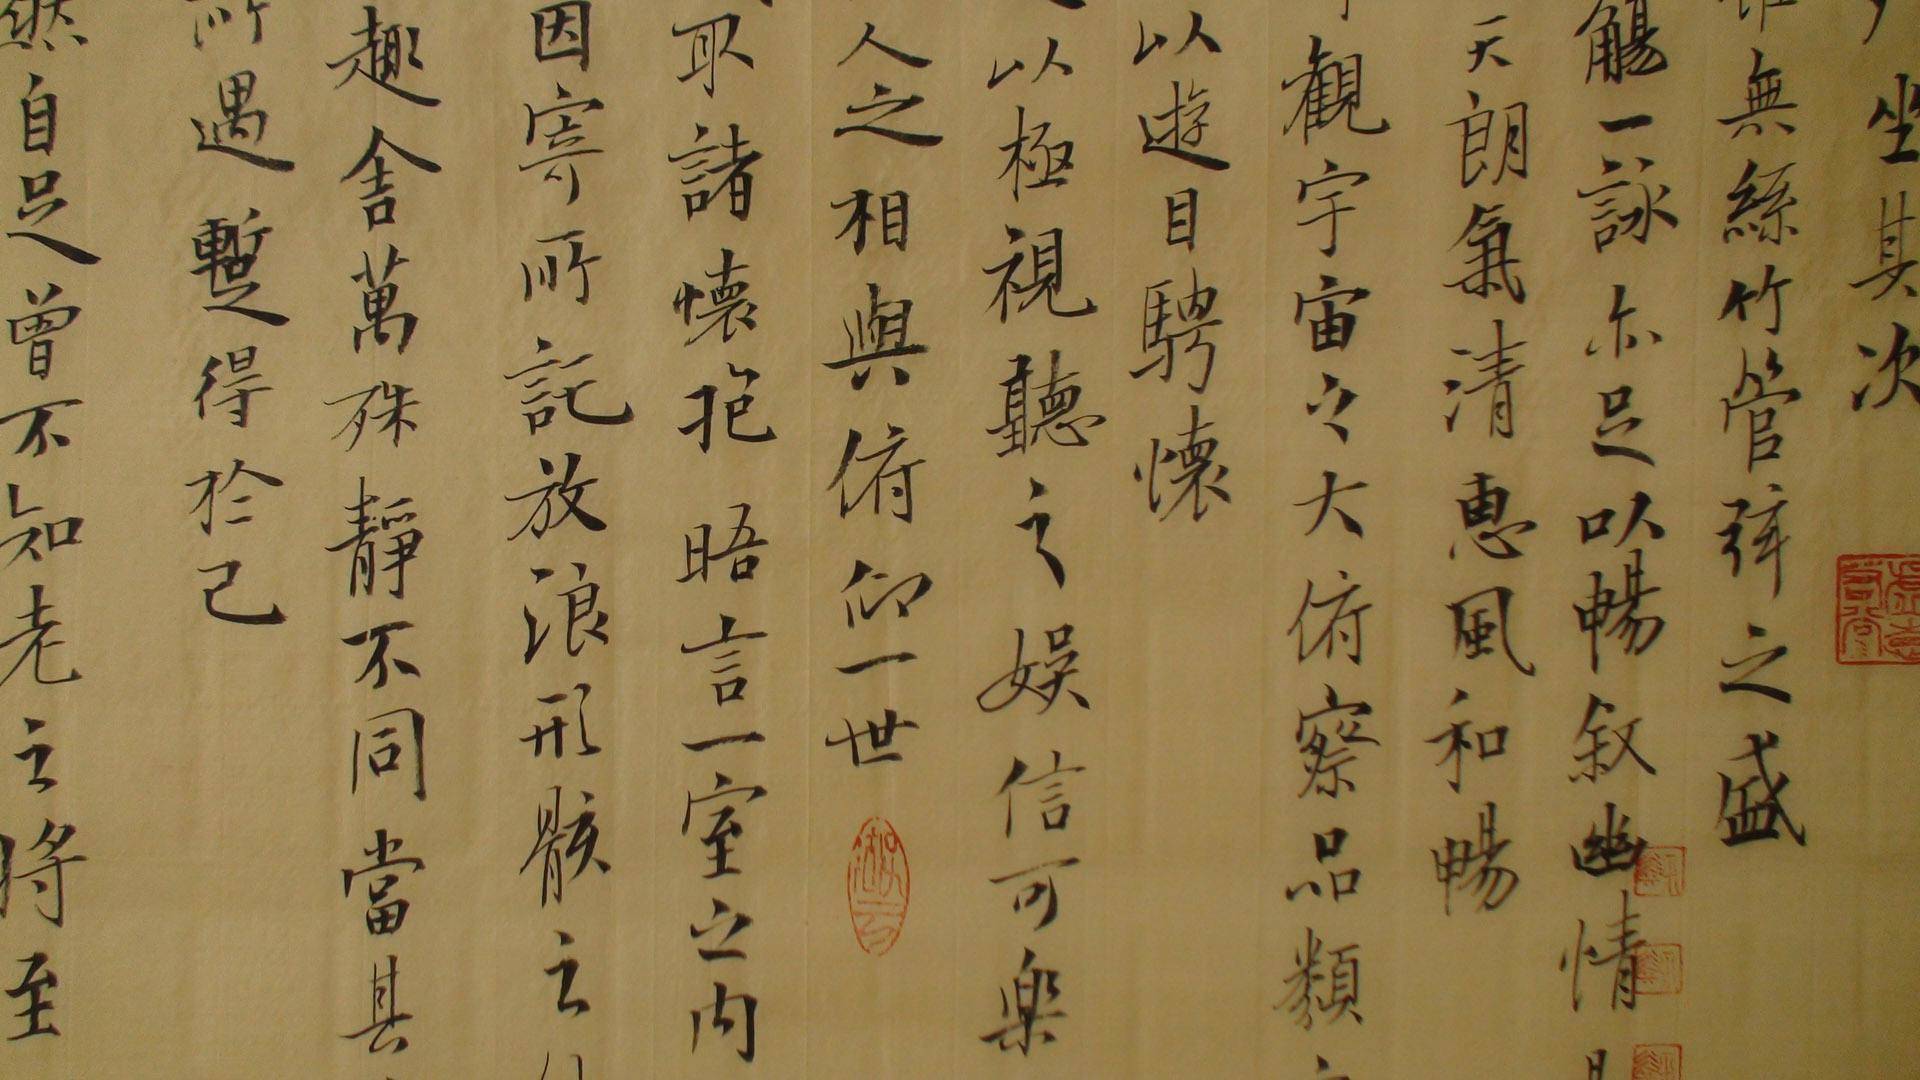 坐其次
無絲竹管弦之盛
觴一詠亦足以暢敘幽情
天朗氣清惠風和暢
觀宇宙之大俯察品類
以遊目騁懷
以極視聽之娛信可樂
人之相與俯仰一世
取諸懷抱晤言一室之內
因寄所託放浪形骸之
趣舍萬殊靜不同當其
所遇暫得於己
然自足曾不知老之將至